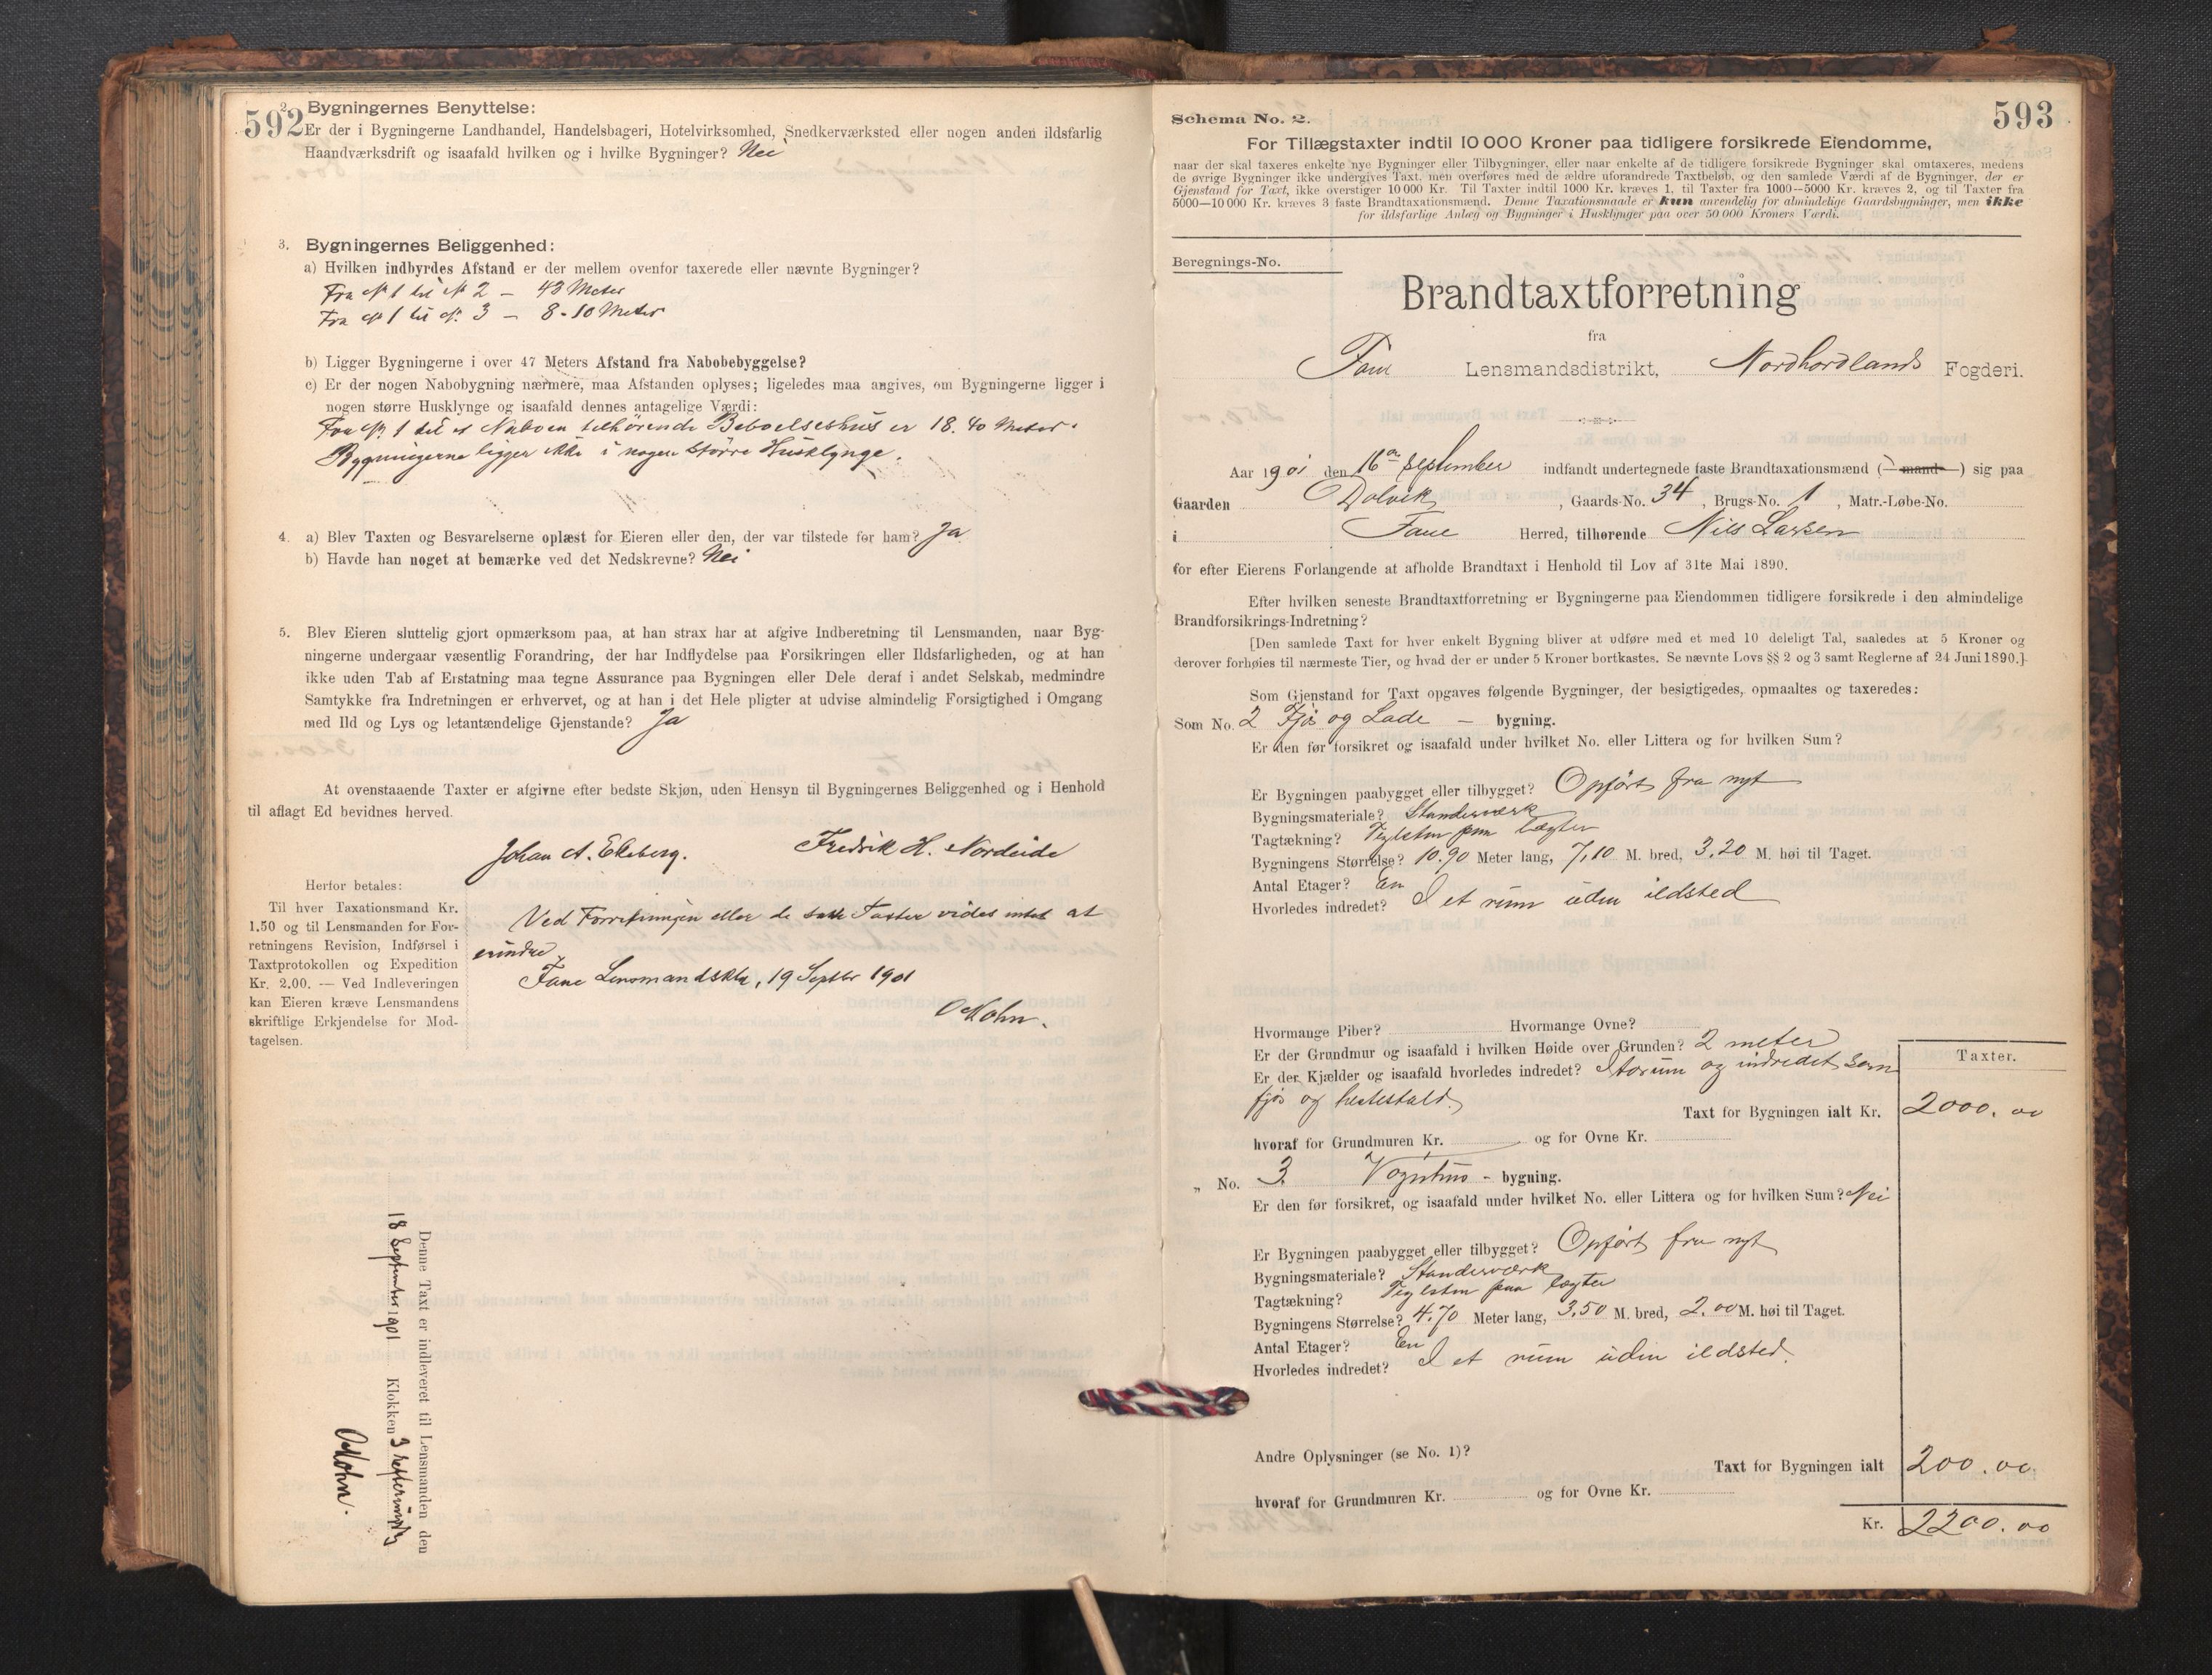 592
2. Bygningernes Benyttelse:
Er der i Bygningerne Landhandel, Handelsbageri, Hotelvirksomhed, Snedkerværksted eller nogen anden ildsfarlig
Haandværksdrift og isaafald hvilken og i hvilke Bygninger? Nei
3. Bygningernes Beliggenhed:
a) Hvilken indbyrdes Afstand er der mellem ovenfor taxerede eller nævnte Bygninger?
Fra № 1 til № 2 – 43 Meter
Fra № 1 til №. 3 – 8-10 Meter
b) Ligger Bygningerne i over 47 Meters Afstand fra Nabobebyggelse?
c) Er der nogen Nabobygning nærmere, maa Afstanden oplyses; ligeledes maa angives, om Bygningerne ligger i
nogen større Husklynge og isaafald dennes antagelige Værdi:
Fra №. 1 til et Naboen tilhörende Beboelseshus er 18.40 Meter.
Bygningerne ligger ikke i nogen större Husklynge.
4. a) Blev Taxten og Besvarelserne oplæst for Eieren eller den, der var tilstede for ham? Ja
b) Havde han noget at bemærke ved det Nedskrevne? Nei
5. Blev Eieren sluttelig gjort opmærksom paa, at han strax har at afgive Indberetning til Lensmanden, naar Byg-
ningerne undergaar væsentlig Forandring, der har Indflydelse paa Forsikringen eller Ildsfarligheden, og at han
ikke uden Tab af Erstatning maa tegne Assurance paa Bygningen eller Dele deraf i andet Selskab, medmindre
Samtykke fra Indretningen er erhvervet, og at han i det Hele pligter at udvise almindelig Forsigtighed i Omgang
med Ild og Lys og letantændelige Gjenstande? Ja
At ovenstaaende Taxter er afgivne efter bedste Skjøn, uden Hensyn til Bygningernes Beliggenhed og i Henhold
til aflagt Ed bevidnes herved.
Johan A. Ekeberg. Fredrik H. Nordeide
Herfor betales:
Til hver Taxationsmand Kr.
1.50 og til Lensmanden for For-
retningens Revision, Indførsel i
Taxtprotokollen og Expedition
Kr. 2.00. — Ved Indleveringen
kan Eieren kræve Lensmandens
skriftlige Erkjendelse for Mod-
tagelsen.
Ved Forretningen eller de satte Taxter vides intet at
erindre.
Fane Lensmandsktr, 19 Septbr 1901
O Mohn.
Denne Taxt er indleveret til Lensmanden den
18 September 1901 Klokken 3 Eftermiddag
O Mohn.
593
Schema No. 2.
For Tillægstaxter indtil 10 000 Kroner paa tidligere forsikrede Eiendomme,
naar der skal taxeres enkelte nye Bygninger eller Tilbygninger, eller naar enkelte af de tidligere forsikrede Bygninger skal omtaxeres, medens
de øvrige Bygninger ikke undergives Taxt, men overføres med de ældre uforandrede Taxtbeløb, og den samlede Værdi af de Bygninger, der er
Gjenstand for Taxt, ikke overstiger 10 000 Kr. Til Taxter indtil 1000 Kr. kræves 1, til Taxter fra 1000—5000 Kr. kræves 2, og til Taxter fra
5000—10 000 Kr. kræves 3 faste Brandtaxationsmænd. Denne Taxationsmaade er kun anvendelig for almindelige Gaardsbygninger, men ikke
for ildsfarlige Anlæg og Bygninger i Husklynger paa over 50 000 Kroners Værdi.
Beregnings-No.
Brandtaxtforretning
fra
Fane Lensmandsdistrikt, Nordhordlands Fogderi.
Aar 1901 den 16de september indfandt undertegnede faste Brandtaxationsmænd (– mand –) sig paa
Gaarden Dolvik, Gaards-No. 34, Brugs-No. 1, Matr.-Løbe-No.
i Fane Herred, tilhørende Nils Larsen
for efter Eierens Forlangende at afholde Brandtaxt i Henhold til Lov af 31te Mai 1890.
Efter hvilken seneste Brandtaxtforretning er Bygningerne paa Eiendommen tidligere forsikrede i den almindelige
Brandforsikrings-Indretning?
[Den samlede Taxt for hver enkelt Bygning bliver at udføre med et med 10 deleligt Tal, saaledes at 5 Kroner og
derover forhøies til nærmeste Tier, og hvad der er under 5 Kroner bortkastes. Se nævnte Lovs §§ 2 og 3 samt Reglerne af 24 Juni 1890.]
Som Gjenstand for Taxt opgaves følgende Bygninger, der besigtigedes, opmaaltes og taxeredes:
Som No. 2 Fjøs og Lade – bygning.
Er den før forsikret og isaafald under hvilket No. eller Littera og for hvilken Sum?
Er Bygningen paabygget eller tilbygget? Opført fra nyt
Bygningsmateriale? Standerværk
Tagtækning? Teglsten paa lægter
Bygningens Størrelse? 10.90 Meter lang, 7,10 M. bred, 3.20 M. høi til Taget.
Antal Etager? En
Hvorledes indredet? I et rum uden ildsted
Hvormange Piber? Hvormange Ovne?
Er der Grundmur og isaafald i hvilken Høide over Grunden? 2 meter
Er der Kjælder og isaafald hvorledes indredet? I to rum og indredet som
fjøs og hestestald.
Taxter.
Taxt for Bygningen ialt Kr. 2000.00
hvoraf for Grundmuren Kr. og for Ovne Kr.
„ No. 3. Vognhus - bygning.
Er den før forsikret, og isaafald under hvilket No. eller Littera og for hvilken Sum? Nei
Er Bygningen paabygget eller tilbygget? Opført fra nyt
Bygningsmateriale? Standerværk
Tagtækning? Teglsten paa lægter
Bygningens Størrelse? 4.70 Meter lang, 3.50 M. bred, 2.00 M. høi til Taget.
Antal Etager? En
Hvorledes indredet? I et rum uden ildsted.
Andre Oplysninger (se No. 1)?
Taxt for Bygningen ialt 200.00
hvoraf for Grundmuren Kr. og for Ovne Kr.
Kr. 2200.00